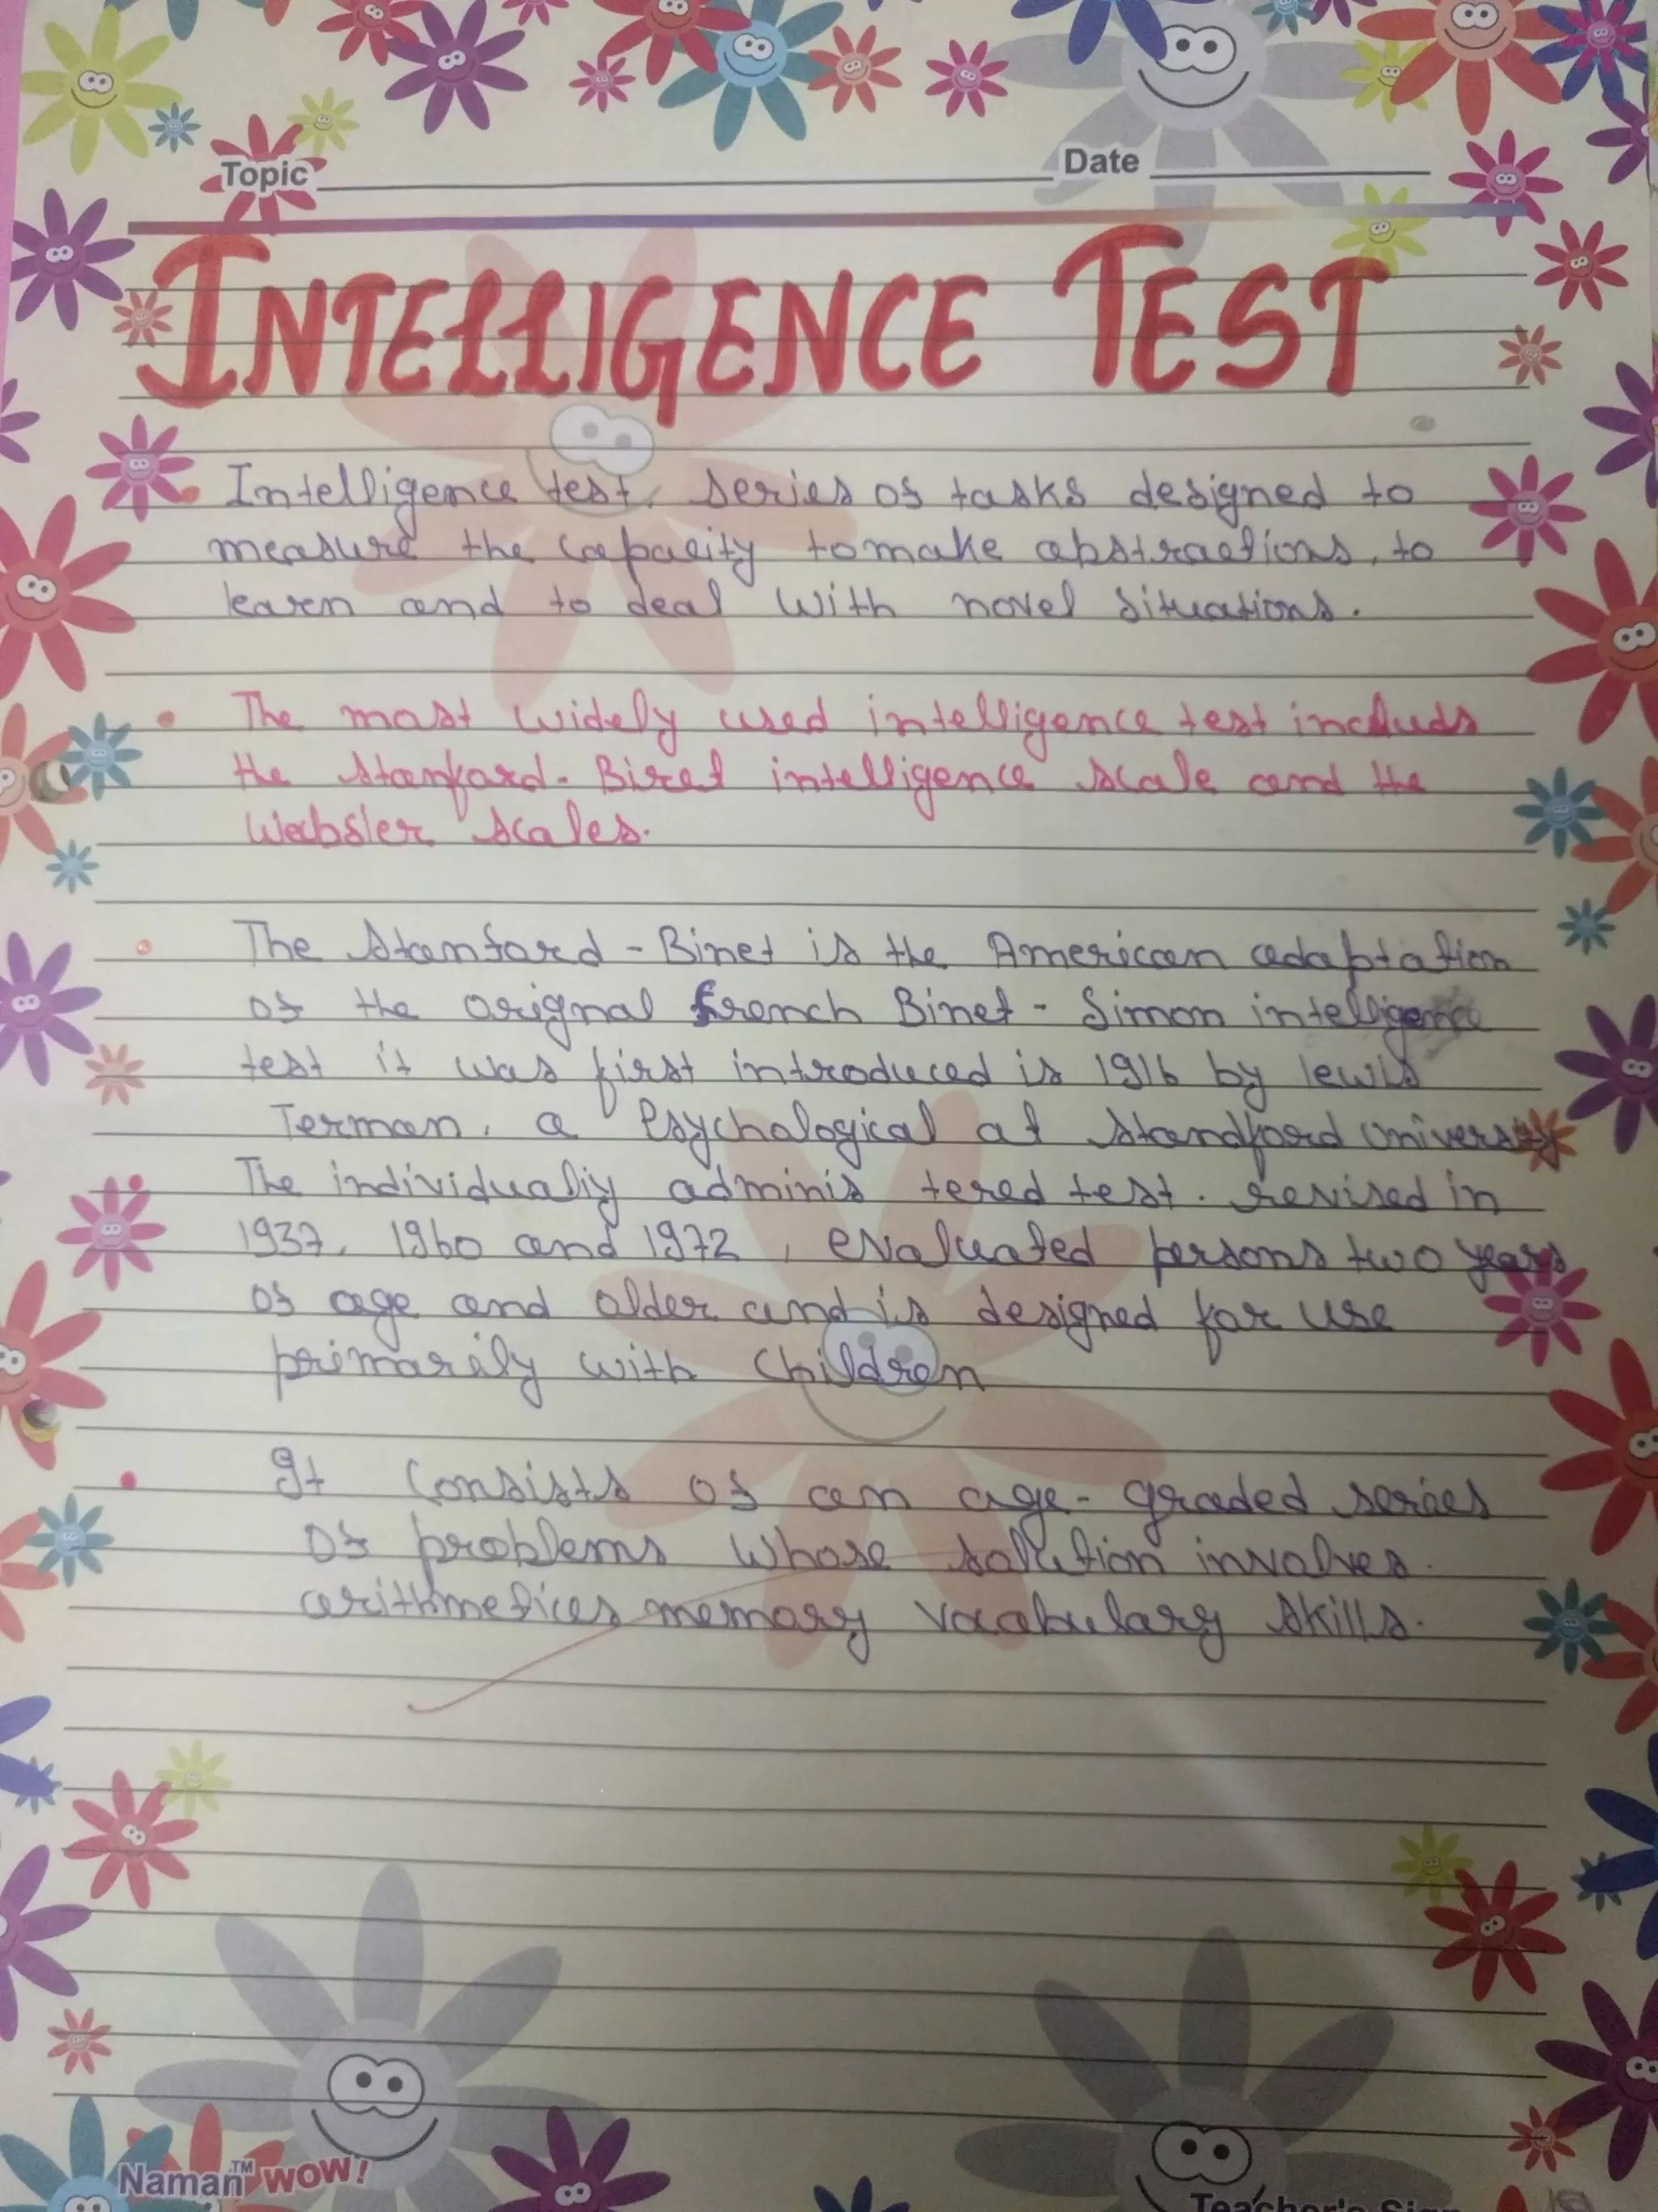 Topic Date
INTELLIGENCE TEST
Intelligence test, series of tasks designed to
measure the capacity to make abstractions, to
learn and to deal with novel situations.
The most widely used intelligence test includs
the Stanford-Binet intelligence scale and the
Webster scales.
The Stanford - Binet is the American adaptation
of the orignal french Binet - Simon intelligence
test it was first introduced is 1916 by lewis
Terman, a Psychological at Standford University
The individualiy adminis tered test. revised in
1937, 1960 and 1972, evaluated persons two years
of age and older and is designed for use
primarily with children
It consists of an age- graded series
of problems whose solution involves.
arithmetices memory vocabulary skills.
Naman™ WOW!
Teacher's Sign